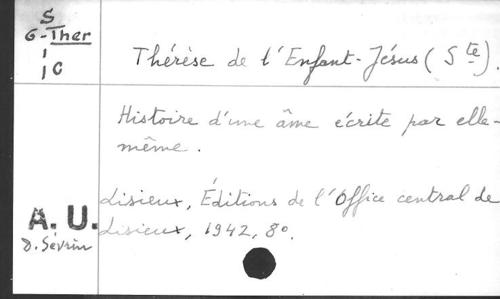 S
G-Ther
1
1C
Thérèse de l'Enfant-Jésus (Ste).
Histoire d'une âme écrite par elle-
même.
Lisieux, Éditions de l'Office central de
Lisieux, 1942, 8º.
A. U.
D. Sévrin